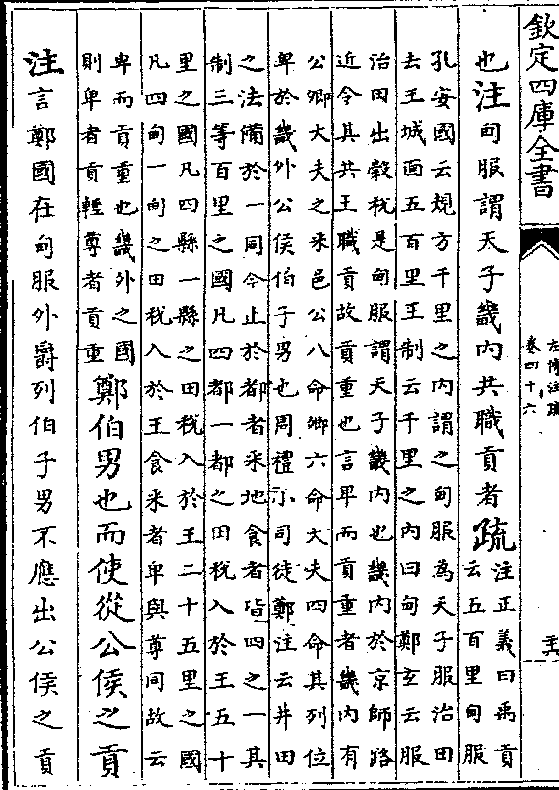 欽定四庫全書
左傳注疏
卷四十六
也注甸服謂天子畿內共職貢者疏
注正義曰禹貢
云五百里甸服
孔安國云規方千里之內謂之甸服為天子服治田
去王城面五百里王制云千里之內曰甸鄭玄云服
治田出穀稅是甸服謂天子畿內也畿內於京師路
近令其共王職貢故貢重也言卑而貢重者畿內有
公卿大夫之采邑公八命卿六命大夫四命其列位
卑於畿外公侯伯子男也周禮小司徒鄭注云井田
之法備於一同今止於都者采地食者皆四之一其
制三等百里之國凡四都一都之田稅入於王五十
里之國凡四縣一縣之田稅入於王二十五里之國
凡四甸一甸之田稅入於王食采者卑與尊同故云
卑而貢重也畿外之國
則卑者貢輕尊者貢重
鄭伯男也而使從公侯之貢
注言鄭國在甸服外爵列伯子男不應出公侯之貢